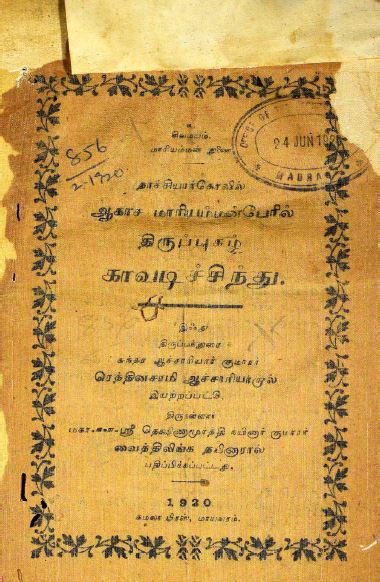 உ
சிவமயம்.
மாரியம்மன் துணை.
நாச்சியார்கோவில்
ஆகாச மாரியம்மன்பேரில்
திருப்புகழ்
காவடிச்சிந்து.
இஃது
சுந்தர ஆச்சாரியார் குமாரர்
ரெத்தினசாமி ஆச்சாரியாரால்
இயற்றப்பட்டு,
திருநள்ளாறு
மகா-ள-ள-ஸ்ரீ தெக்ஷிணாமூர்த்தி நயினார் குமாரர்
வைத்திலிங்க நயினாரால்
பதிப்பிக்கப்பட்டது.
1920
கமலா பிரஸ், மாயவரம்.
856
2-1920
24 JUN 19
MADRAS